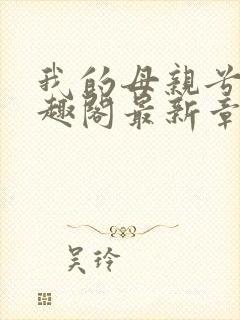 我的母親
趣閣最新章
吴玲